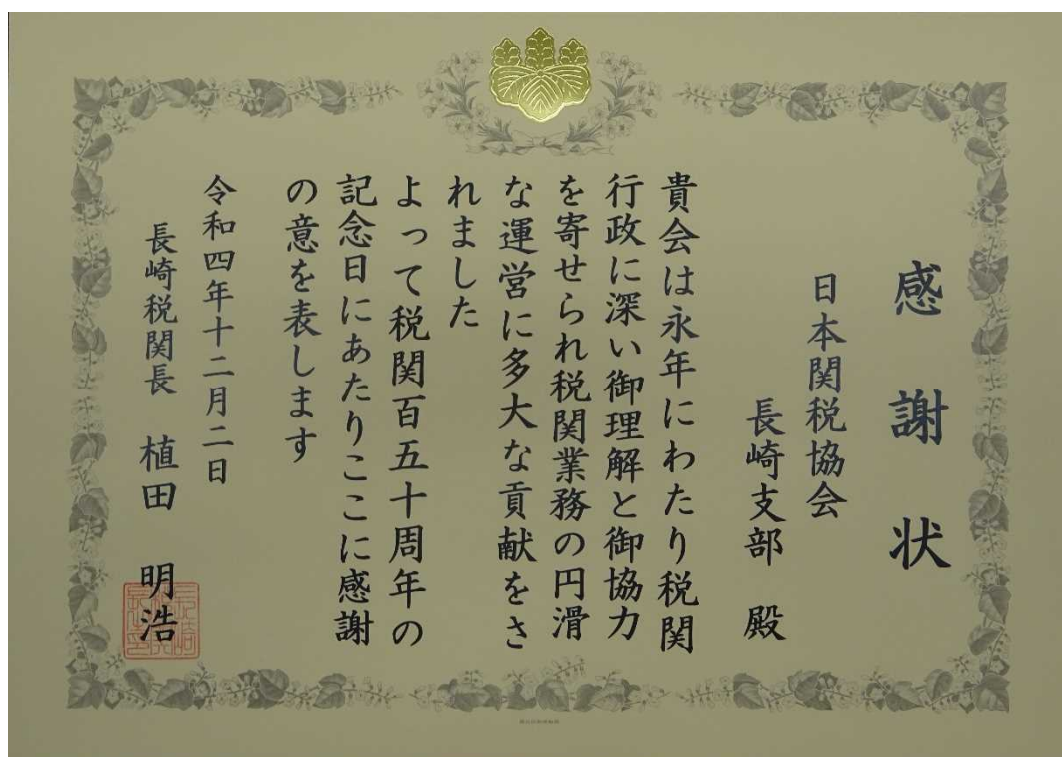 感謝状
日本関税協会
長崎支部 殿
貴会は永年にわたり税関
行政に深い御理解と御協力
を寄せられ税関業務の円滑
な運営に多大な貢献をさ
れました
よって税関百五十周年の
記念日にあたりここに感謝
の意を表します
令和四年十二月二日
長崎税関長 植田 明浩